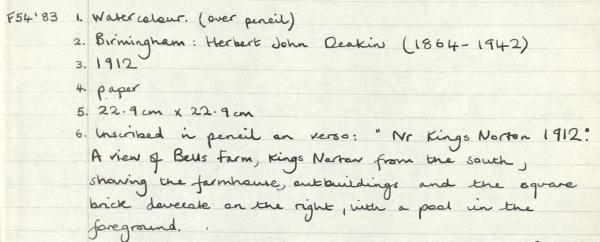 F54'83 1. Watercolour. (over pencil)
2. Birmingham: Herbert John Deakin (1864-1942)
3. 1912
4. paper
5. 22.9cm x 22.9cm
6. Inscribed in pencil on verso: "Nr Kings Norton 1912".
A view of Bells Farm, Kings Norton from the south,
showing the farmhouse, outbuildings and the square
brick dovecote on the right, with a pool in the
foreground.